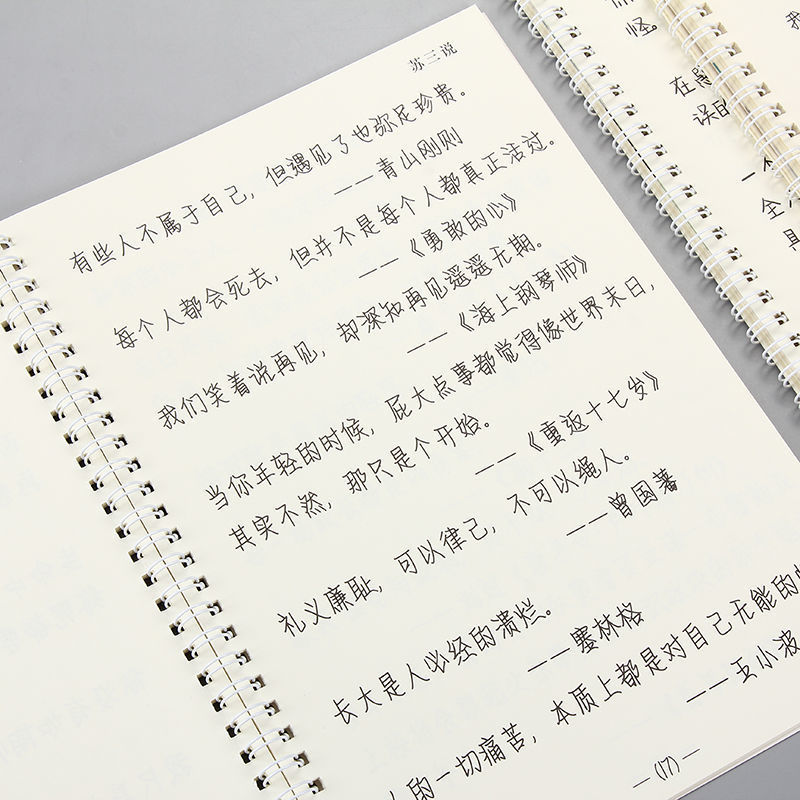 苏三说
有些人不属于自己，但遇见了也弥足珍贵。
——青山刚刚
每个人都会死去，但并不是每个人都真正活过。
——《勇敢的心》
我们笑着说再见，却深知再见遥遥无期。
——《海上钢琴师》
当你年轻的时候，屁大点事都觉得像世界末日，
其实不然，那只是个开始。
——《重返十七岁》
礼义廉耻，可以律己，不可以绳人。
——曾国藩
长大是人必经的溃烂。
——塞林格
的一切痛苦，本质上都是对自己无能的
——王小波
—(17)—
怪。
在
误的
全